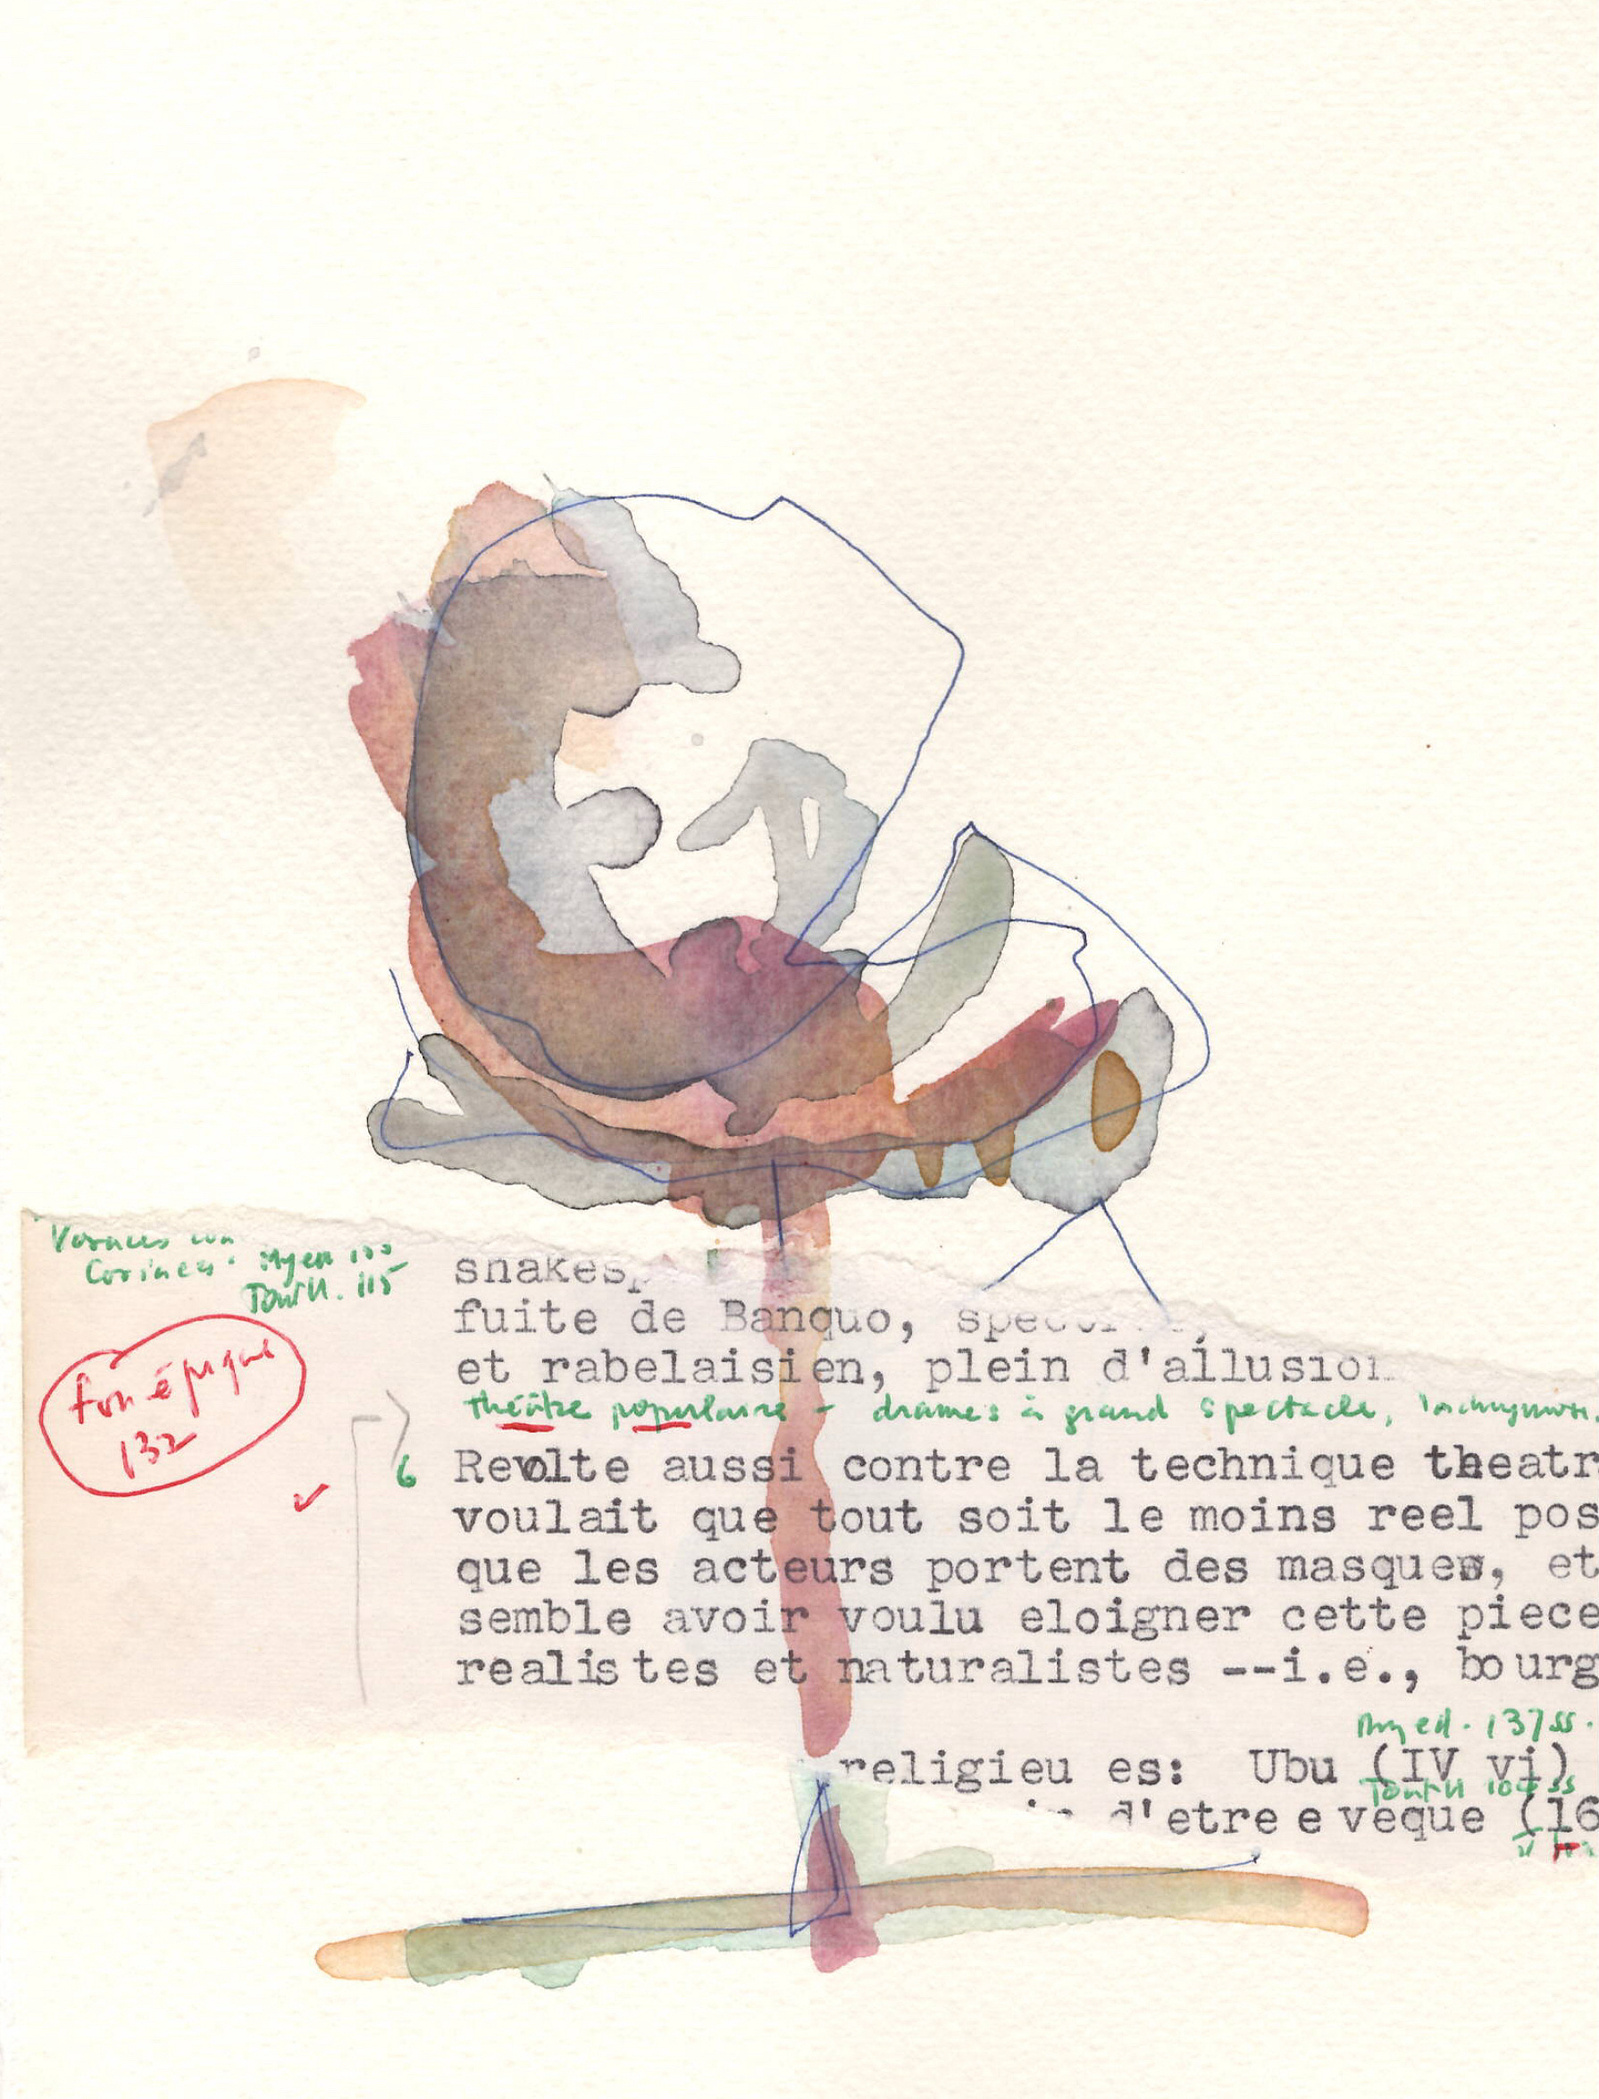 Tourn. 115
ton épique
132
fuite de Banquo,
et rabelaisien, plein d'allusion
théâtre populaire - drames à grand spectacle,
6 Revolte aussi contre la technique theatr
voulait que tout soit le moins reel pos
que les acteurs portent des masques, et
semble avoir voulu eloigner cette piece
realistes et naturalistes --i.e., bourg
137ss.
religieu es: Ubu (IV vi)
d'etre e veque (16